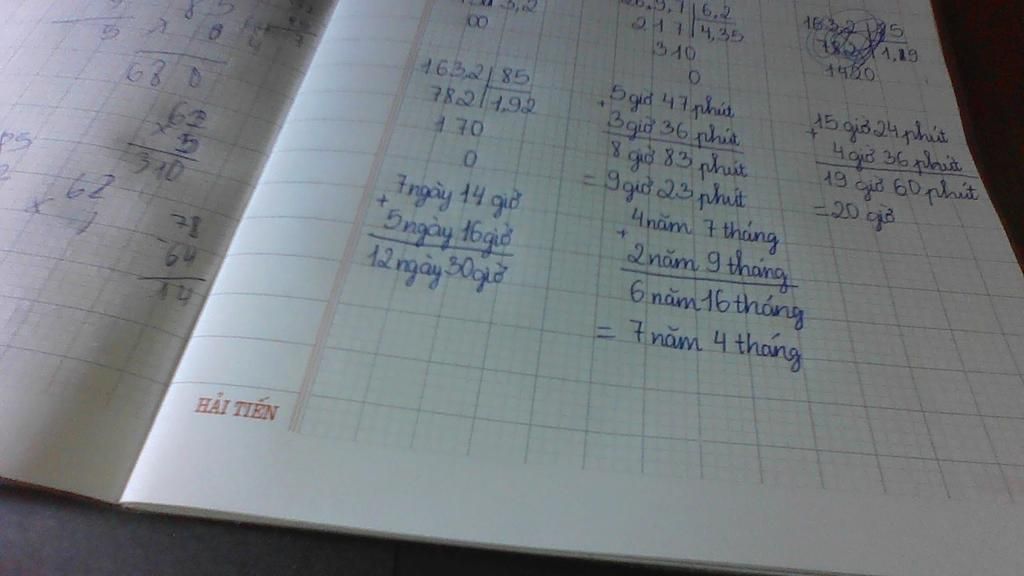 85
680
62
× 5
310
62
×
78
64
14
HẢI TIẾN
00
217 | 4,35
310
0
163,2 | 85
782 | 1,92
170
0
7 ngày 14 giờ
+
5 ngày 16 giờ
12 ngày 30 giờ
5 giờ 47 phút
+
3 giờ 36 phút
8 giờ 83 phút
= 9 giờ 23 phút
4 năm 7 tháng
+
2 năm 9 tháng
6 năm 16 tháng
= 7 năm 4 tháng
163,2 85
1,89
1420
15 giờ 24 phút
+
4 giờ 36 phút
19 giờ 60 phút
= 20 giờ